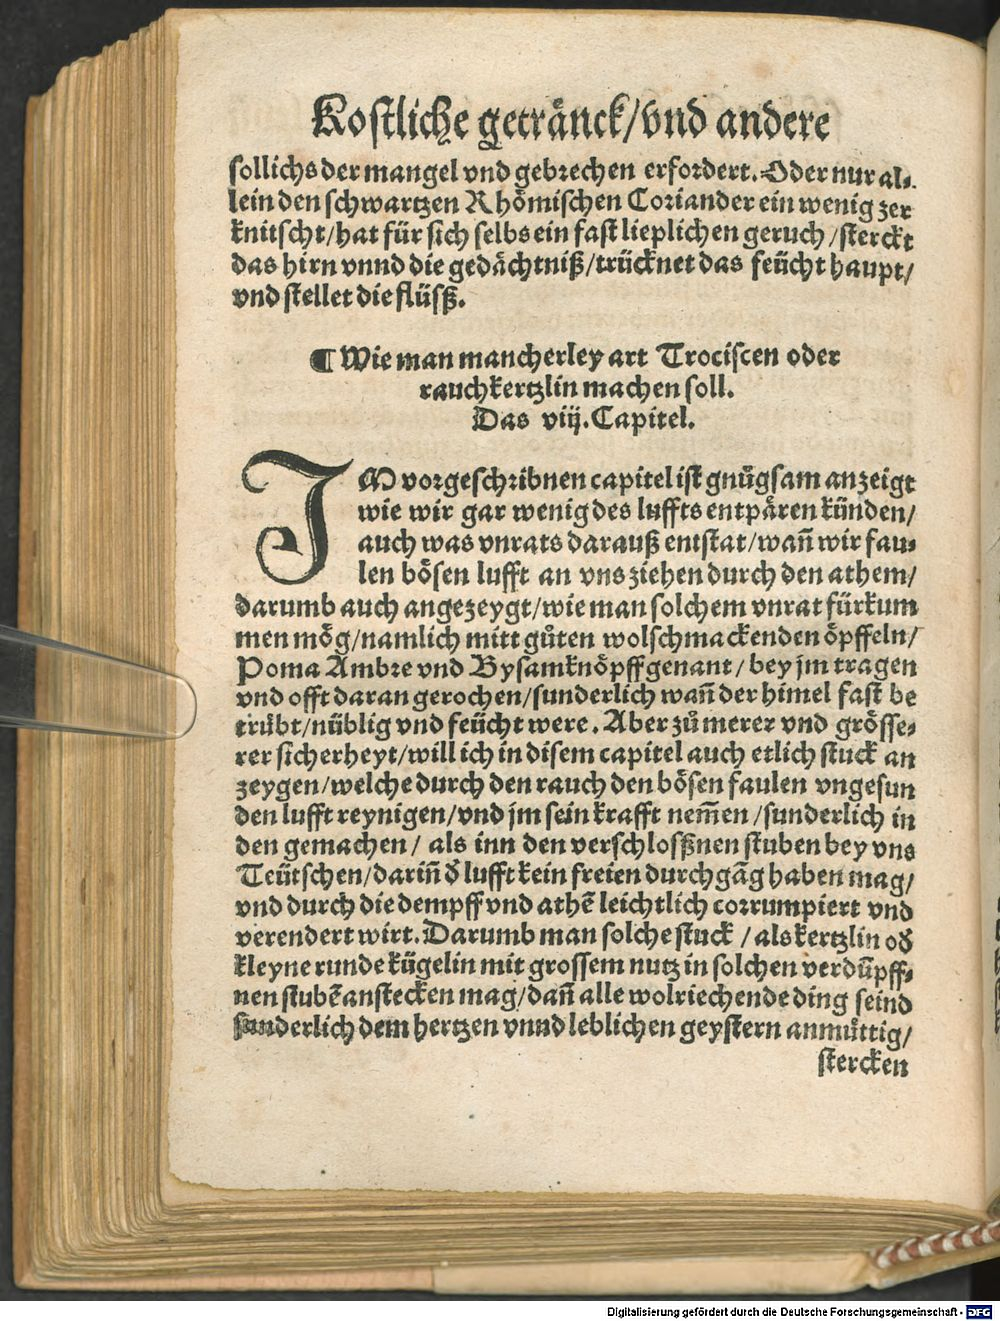 Kostliche getränck/vnd andere
sollichs der mangel vnd gebrechen erfordert. Oder nur al⸗
lein den schwartzen Rhömischen Coriander ein wenig zer
knitscht/hat für sich selbs ein fast lieplichen geruch/sterckt
das hirn vnnd die gedächtniß/trücknet das feücht haupt/
vnd stellet die flüsß.
¶ Wie man mancherley art Trociscen oder
rauchkertzlin machen soll.
Das viij. Capitel.
IM vorgeschribnen capitel ist gnůgsam anzeigt
wie wir gar wenig des luffts entpären künden/
auch was vnrats darauß entstat/wañ wir fau⸗
len bösen lufft an vns ziehen durch den athem/
darumb auch angezeygt/wie man solchem vnrat fürkum
men mög/namlich mitt gůten wolschmackenden öpffeln/
Poma Ambre vnd Bysamknöpff genant/bey jm tragen
vnd offt daran gerochen/sunderlich wañ der himel fast be
trübt/nüblig vnd feücht were. Aber zů merer vnd grösse⸗
rer sicherheyt/will ich in disem capitel auch etlich stuck an
zeygen/welche durch den rauch den bösen faulen vngesun
den lufft reynigen/vnd jm sein krafft nem̃en/sunderlich in
den gemachen/als inn den verschlosßnen stuben bey vns
Teütschen/dariñ d̕ lufft kein freien durchgāg haben mag/
vnd durch die dempff vnd athē leichtlich corrumpiert vnd
verendert wirt. Darumb man solche stuck/als kertzlin od̕
kleyne runde kügelin mit grossem nutz in solchen verdüpff⸗
nen stubē anstecken mag/dañ alle wolriechende ding seind
sunderlich dem hertzen vnnd leblichen geystern anmůttig/
stercken
Digitalisierung gefördert durch die Deutsche Forschungsgemeinschaft - DFG